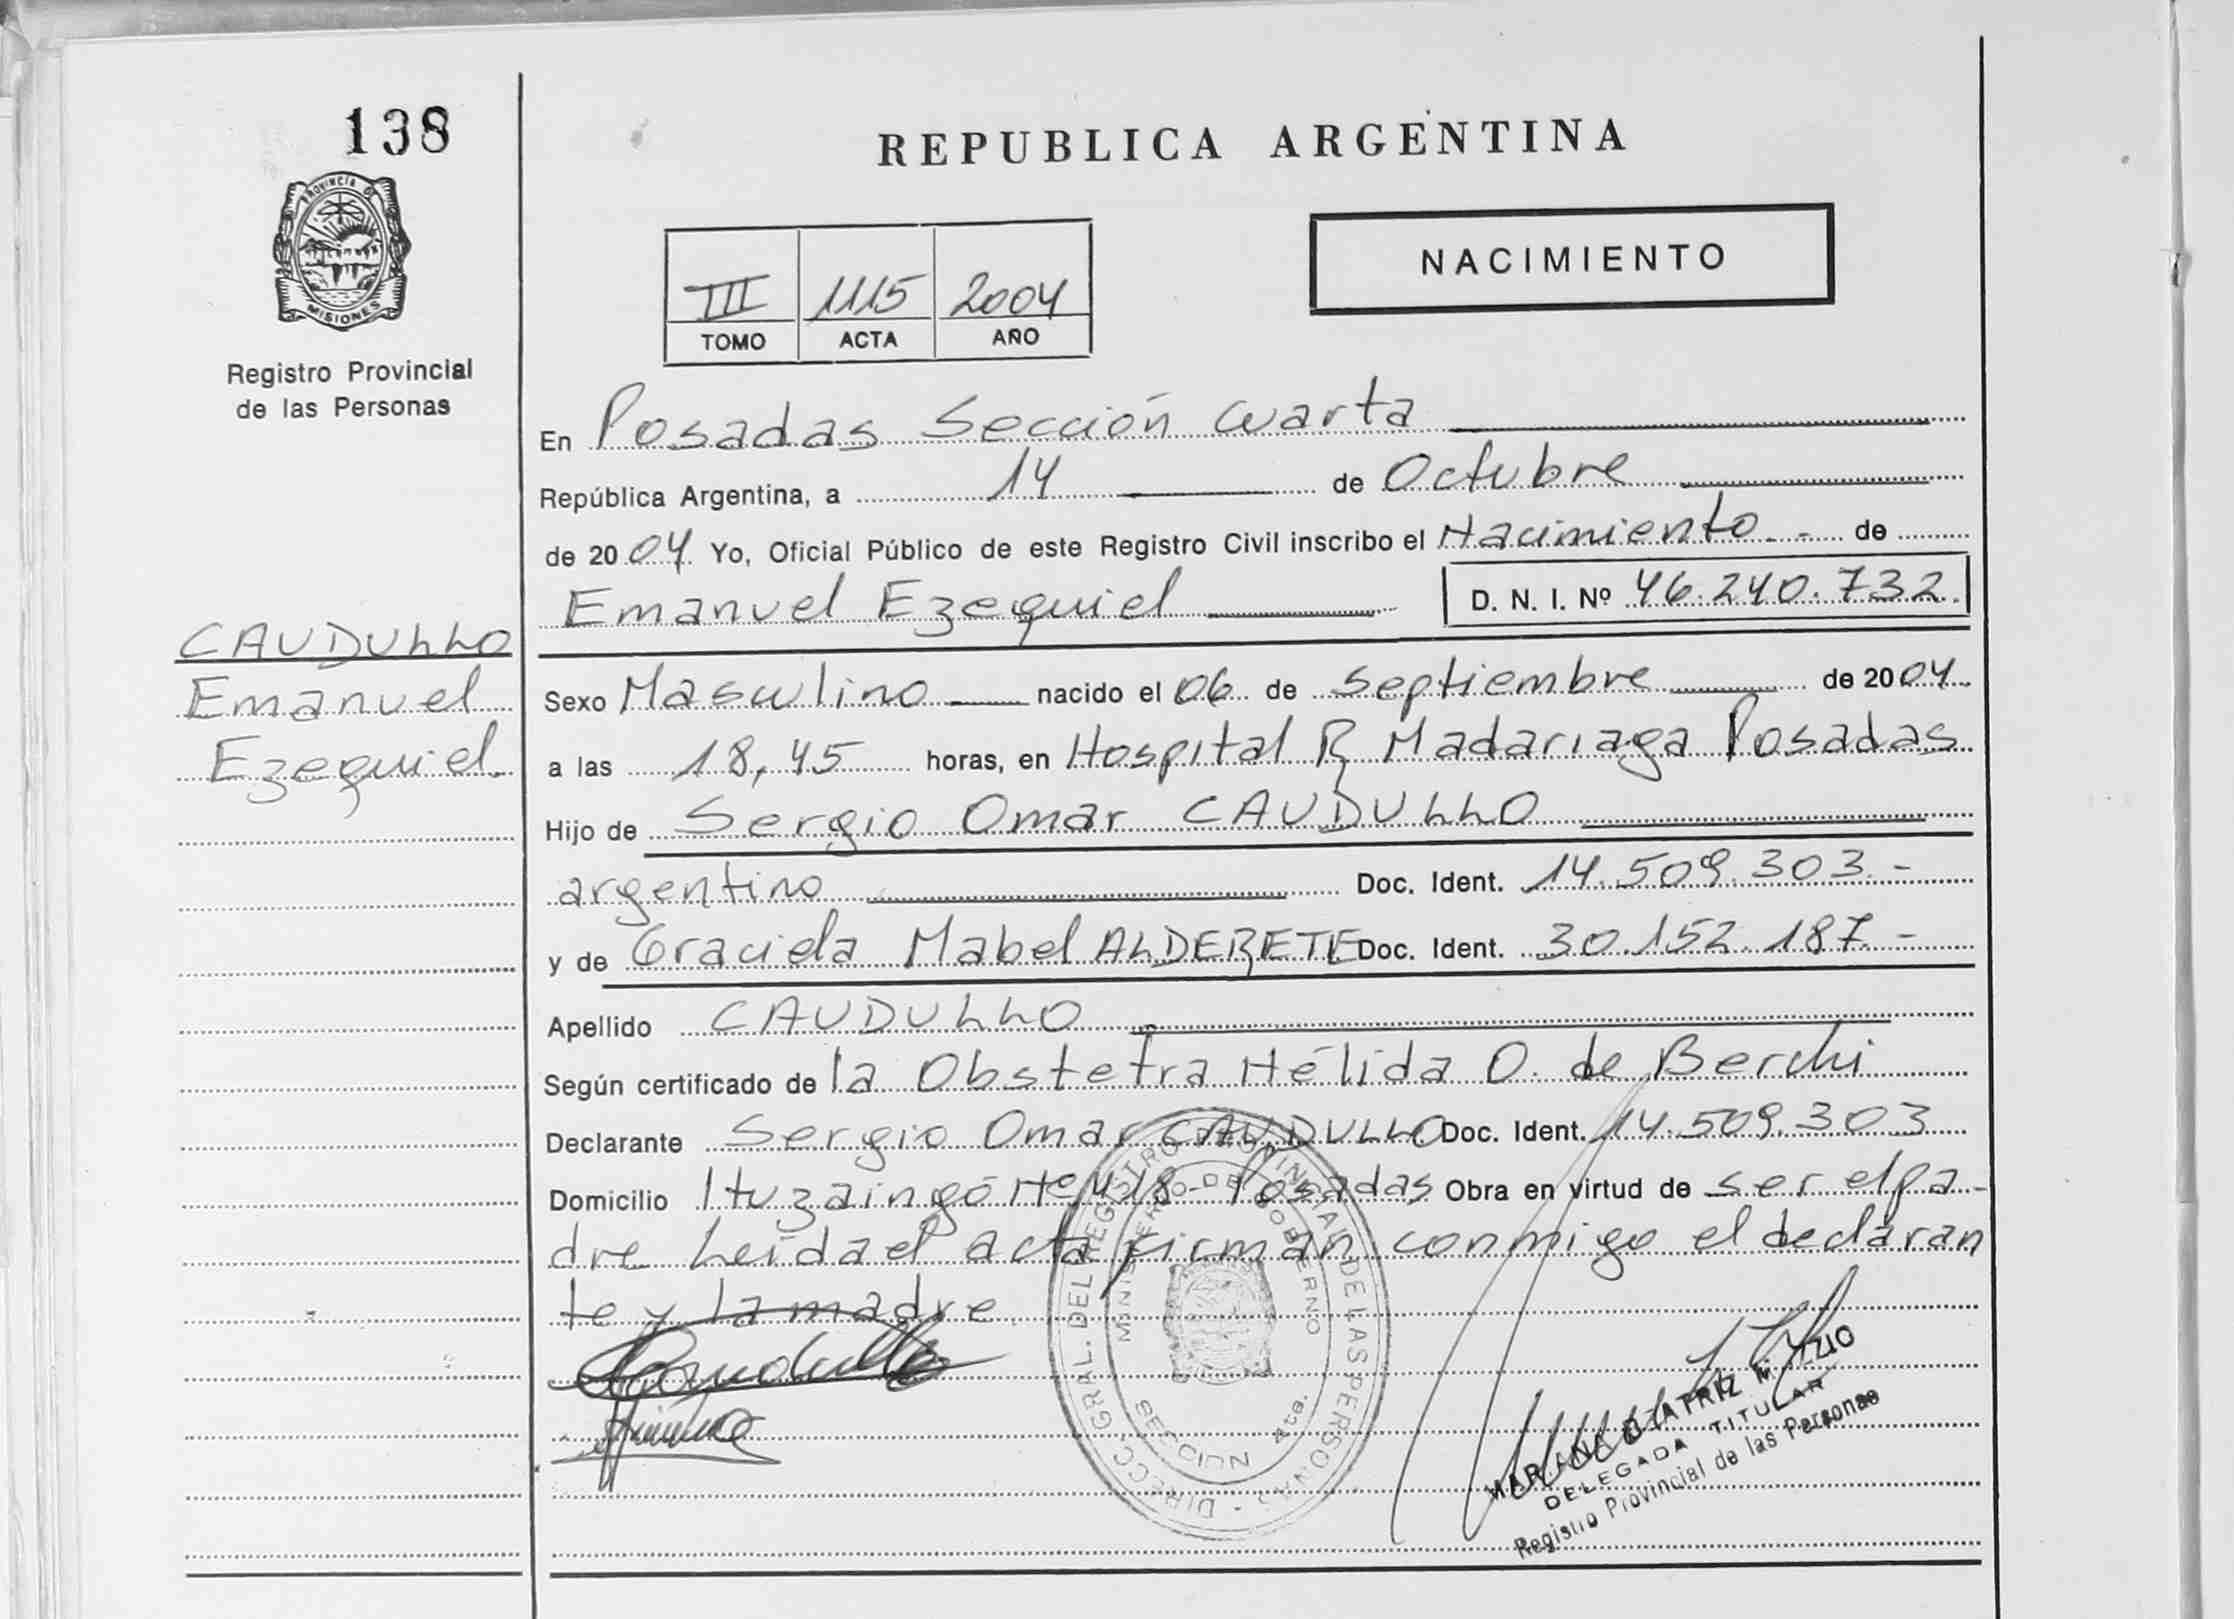 138
PROVINCIA DE
MISIONES
Registro Provincial
de las Personas
CAUDULLO
Emanuel
Ezequiel
REPUBLICA ARGENTINA
NACIMIENTO
III 1115 2004
TOMO ACTA AÑO
En Posadas Sección Cuarta
República Argentina, a 14 de Octubre
de 2004 Yo, Oficial Público de este Registro Civil inscribo el Nacimiento.- de
Emanuel Ezequiel D. N. I. Nº 46.240.732.
Sexo Masculino nacido el 06 de Septiembre de 2004
a las 18,45 horas, en Hospital R Madariaga Posadas
Hijo de Sergio Omar CAUDULLO
argentino Doc. Ident. 14.509.303.-
y de Graciela Mabel ALDERETE Doc. Ident. 30.152.187.-
Apellido CAUDULLO
Según certificado de la Obstetra Hélida O. de Berchi
Declarante Sergio Omar CAUDULLO Doc. Ident. 14.509.303
Domicilio Ituzaingó Nº 418- Posadas Obra en virtud de ser el pa-
dre Leída el acta firman conmigo el declaran
te y la madre
Caudullo
DIRECC. GRAL. DEL REGISTRO PROVINCIAL DE LAS PERSONAS -
MINISTERIO DE GOBIERNO
SECCION 4ta.
BEATRIZ
DELEGADA TITULAR
Registro Provincial de las Personas